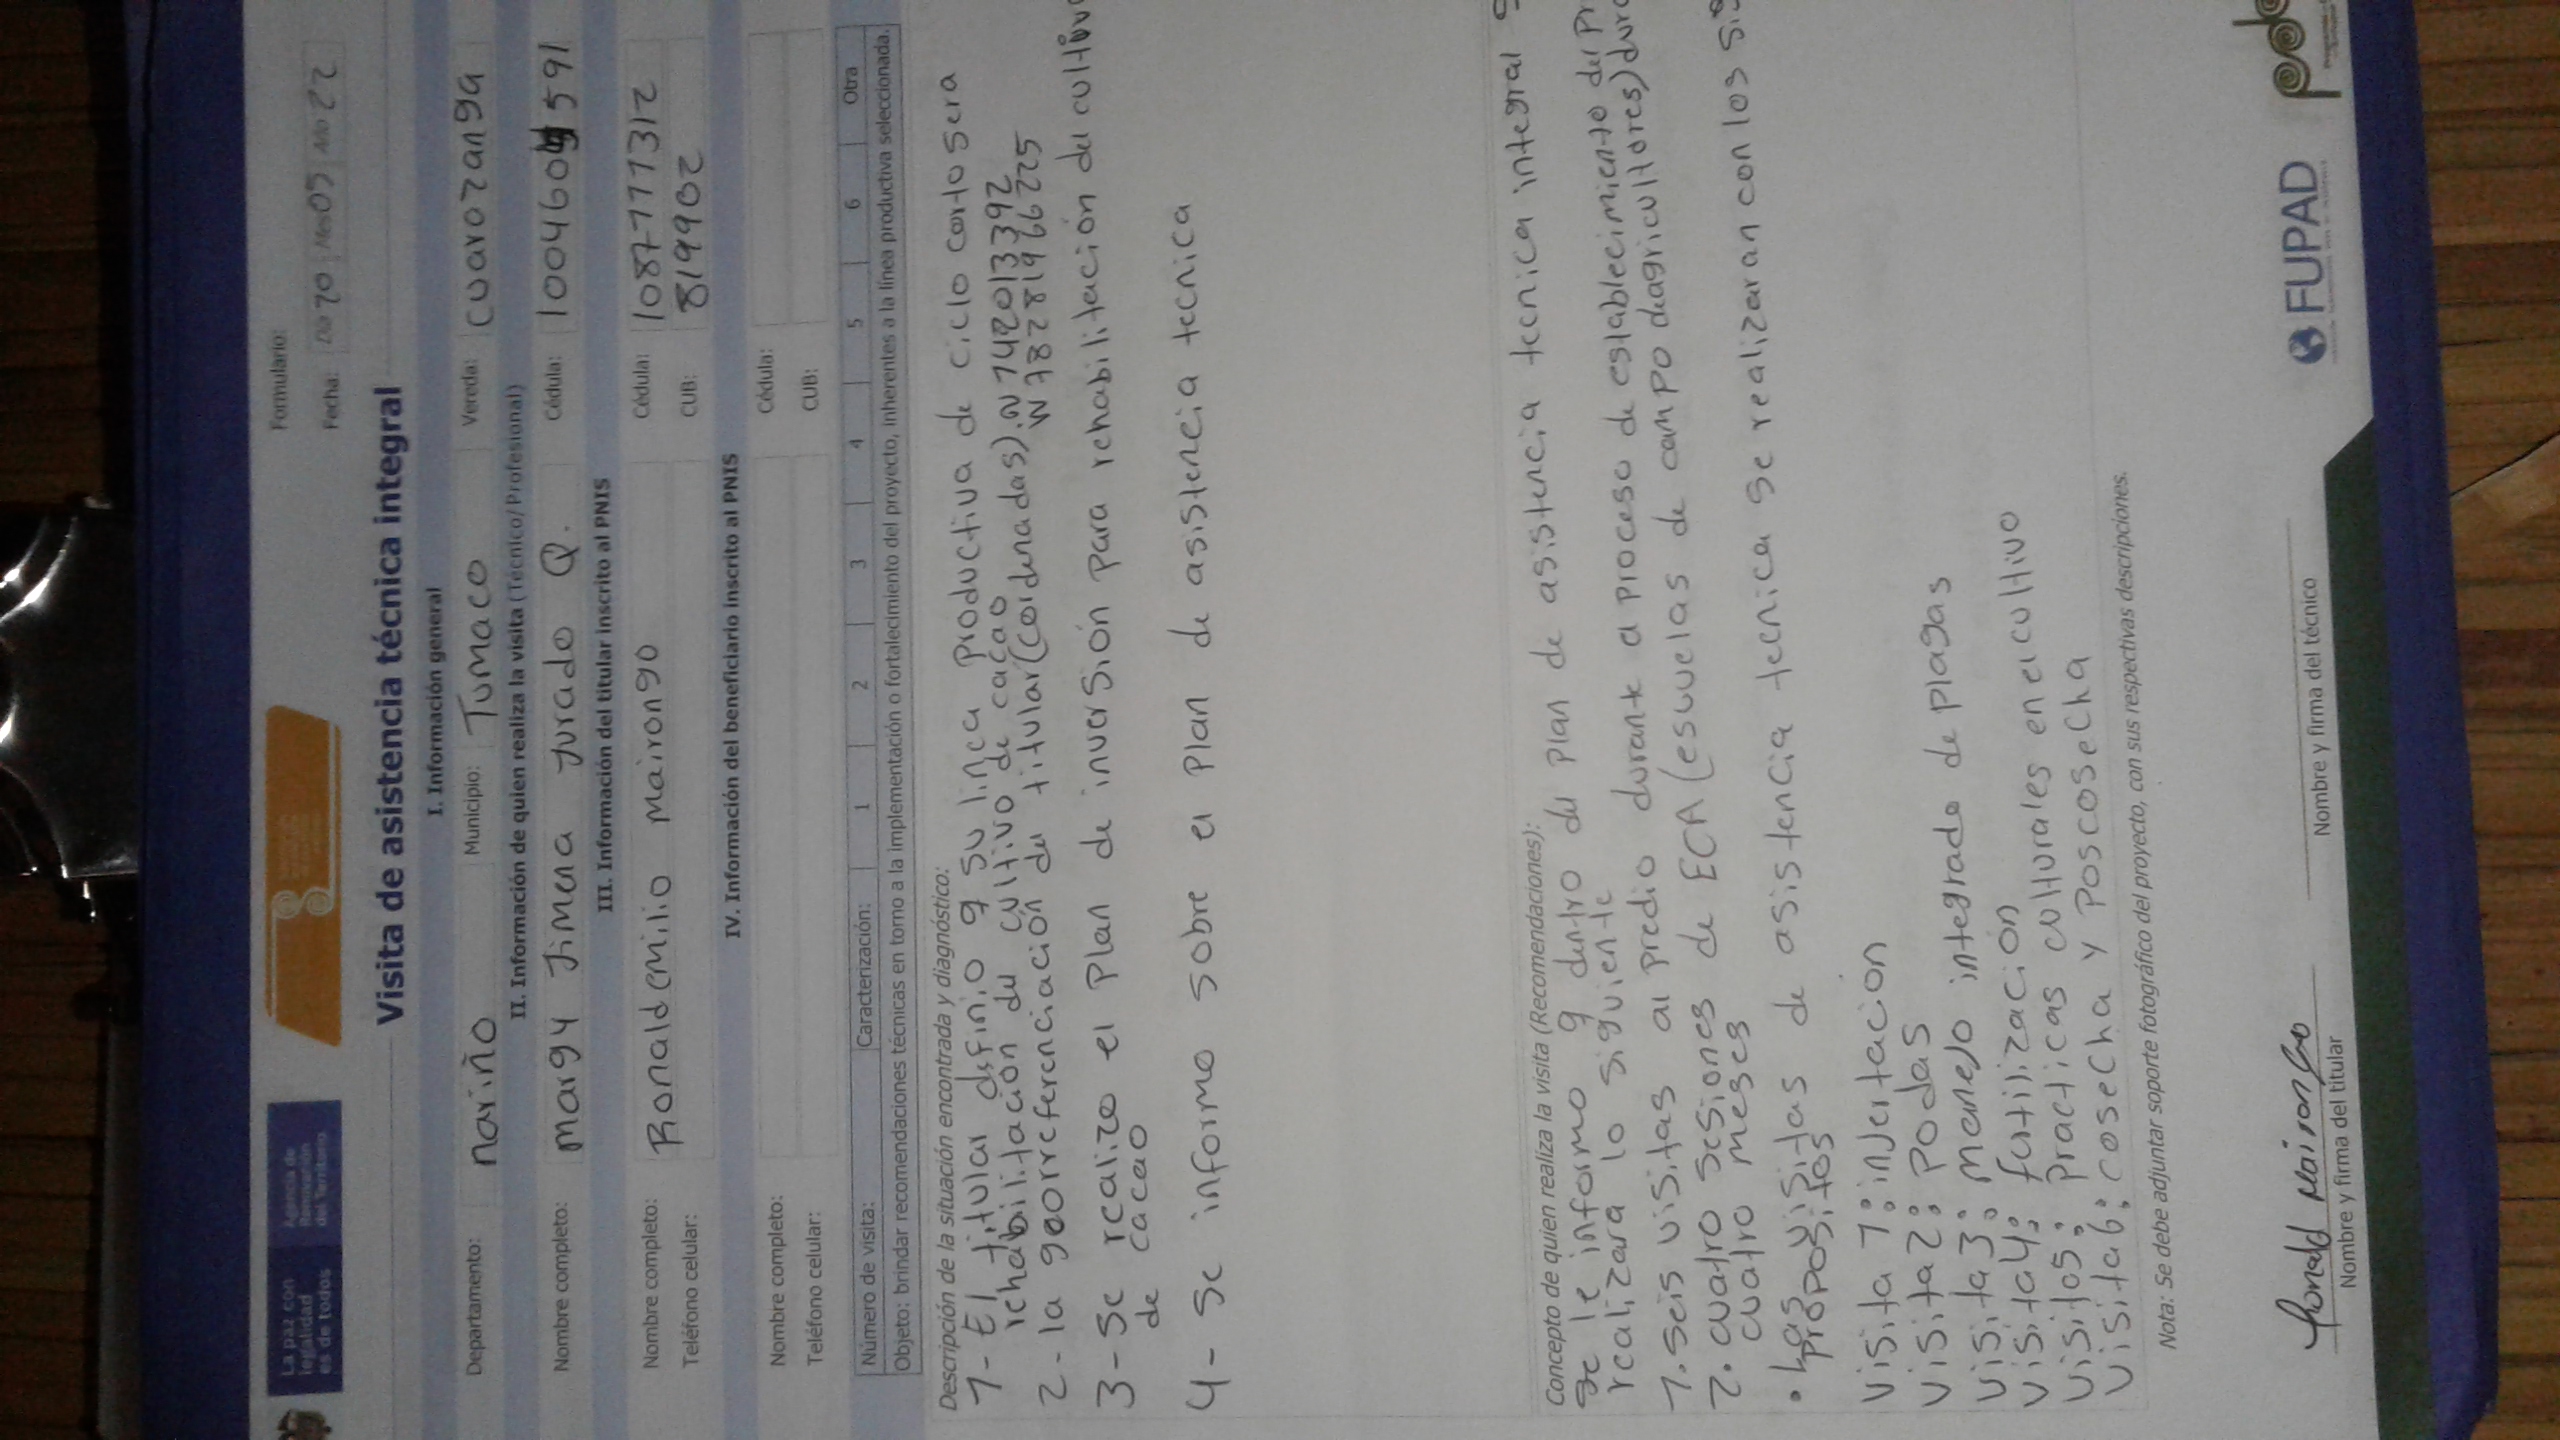 La paz con
legalidad
es de todos
Agencia de
Renovación
del Territorio
Formulario:
Fecha: Día 20 Mes 05 Año 22
Visita de asistencia técnica integral
I. Información general
Departamento: nariño Municipio: Tumaco Vereda: cuarozanga
II. Información de quien realiza la visita (Técnico/ Profesional)
Nombre completo: margy Jimena Jurado Q. Cédula:
III. Información del titular inscrito al PNIS
Nombre completo: Ronald emilio mairongo Cédula: 1087777312
Teléfono celular: CUB: 819902
IV. Información del beneficiario inscrito al PNIS
Nombre completo: Cédula:
Teléfono celular: CUB:
Número de visita: Caracterización: 1 2 3 4 5 6 Otra
Objeto: brindar recomendaciones técnicas en torno a la implementación o fortalecimiento del proyecto, inherentes a la línea productiva seleccionada.
Descripción de la situación encontrada y diagnóstico:
1- El titular difinio q su linea productiva de ciclo corto sera
rehabilitación de cultivo de cacao
2- la georreferenciación de titular (cordenadas).
3- Se realizo el plan de inversión para rehabilitación del cultivo
de cacao
4- Se informo sobre el plan de asistencia tecnica
Concepto de quien realiza la visita (Recomendaciones):
se le informo q dentro del plan de asistencia tecnica integral
realizara lo siguiente
1. seis visitas al predio durante el proceso de establecimiento del
2. cuatro sesiones de ECA (escuelas de campo de agricultores)
cuatro meses
• Las visitas de asistencia tecnica se realizaran con los
propositos
visita 1: injertacion
visita 2: Podas
visita 3: manejo integrado de plagas
visita 4: fertilización
visita 5: practicas culturales en el cultivo
visita 6: cosecha y poscosecha
Nota: Se debe adjuntar soporte fotográfico del proyecto, con sus respectivas descripciones.
Ronald Mairongo
Nombre y firma del titular Nombre y firma del técnico
FUPAD